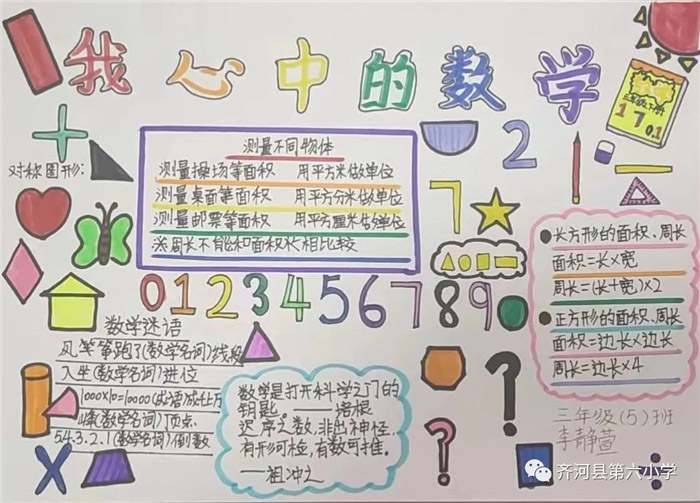 我心中的数学
三年级下册
1 7 0.1
2
7
对称图形:
测量不同物体
测量操场等面积 用平方米做单位
测量桌面等面积 用平方分米做单位
测量邮票等面积 用平方厘米做单位
※周长不能和面积长相比较
长方形的面积、周长
面积=长×宽
周长=(长+宽)×2
正方形的面积、周长
面积=边长×边长
周长=边长×4
0123456789
数学谜语
风筝跑了(数学名词)线段
入坐(数学名词)进位
1000×10=10000(成语)成仕万
峰(数学名词)顶点.
5.4.3.2.1(数学名词)倒数
数学是打开科学之门的
钥匙。——培根
迟序之数,非出神怪,
有形可检,有数可推。
——祖冲之
?
?
X
三年级(5)班
李静萱
齐河县第六小学